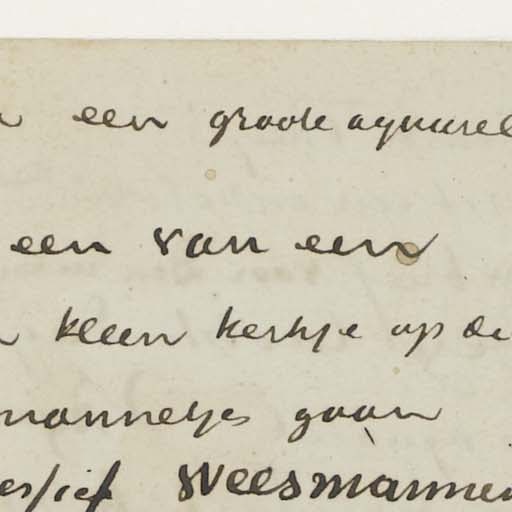 een groote aquarel
een van een
kleen kerkje op de
mannetjes gaan
Weesmannen